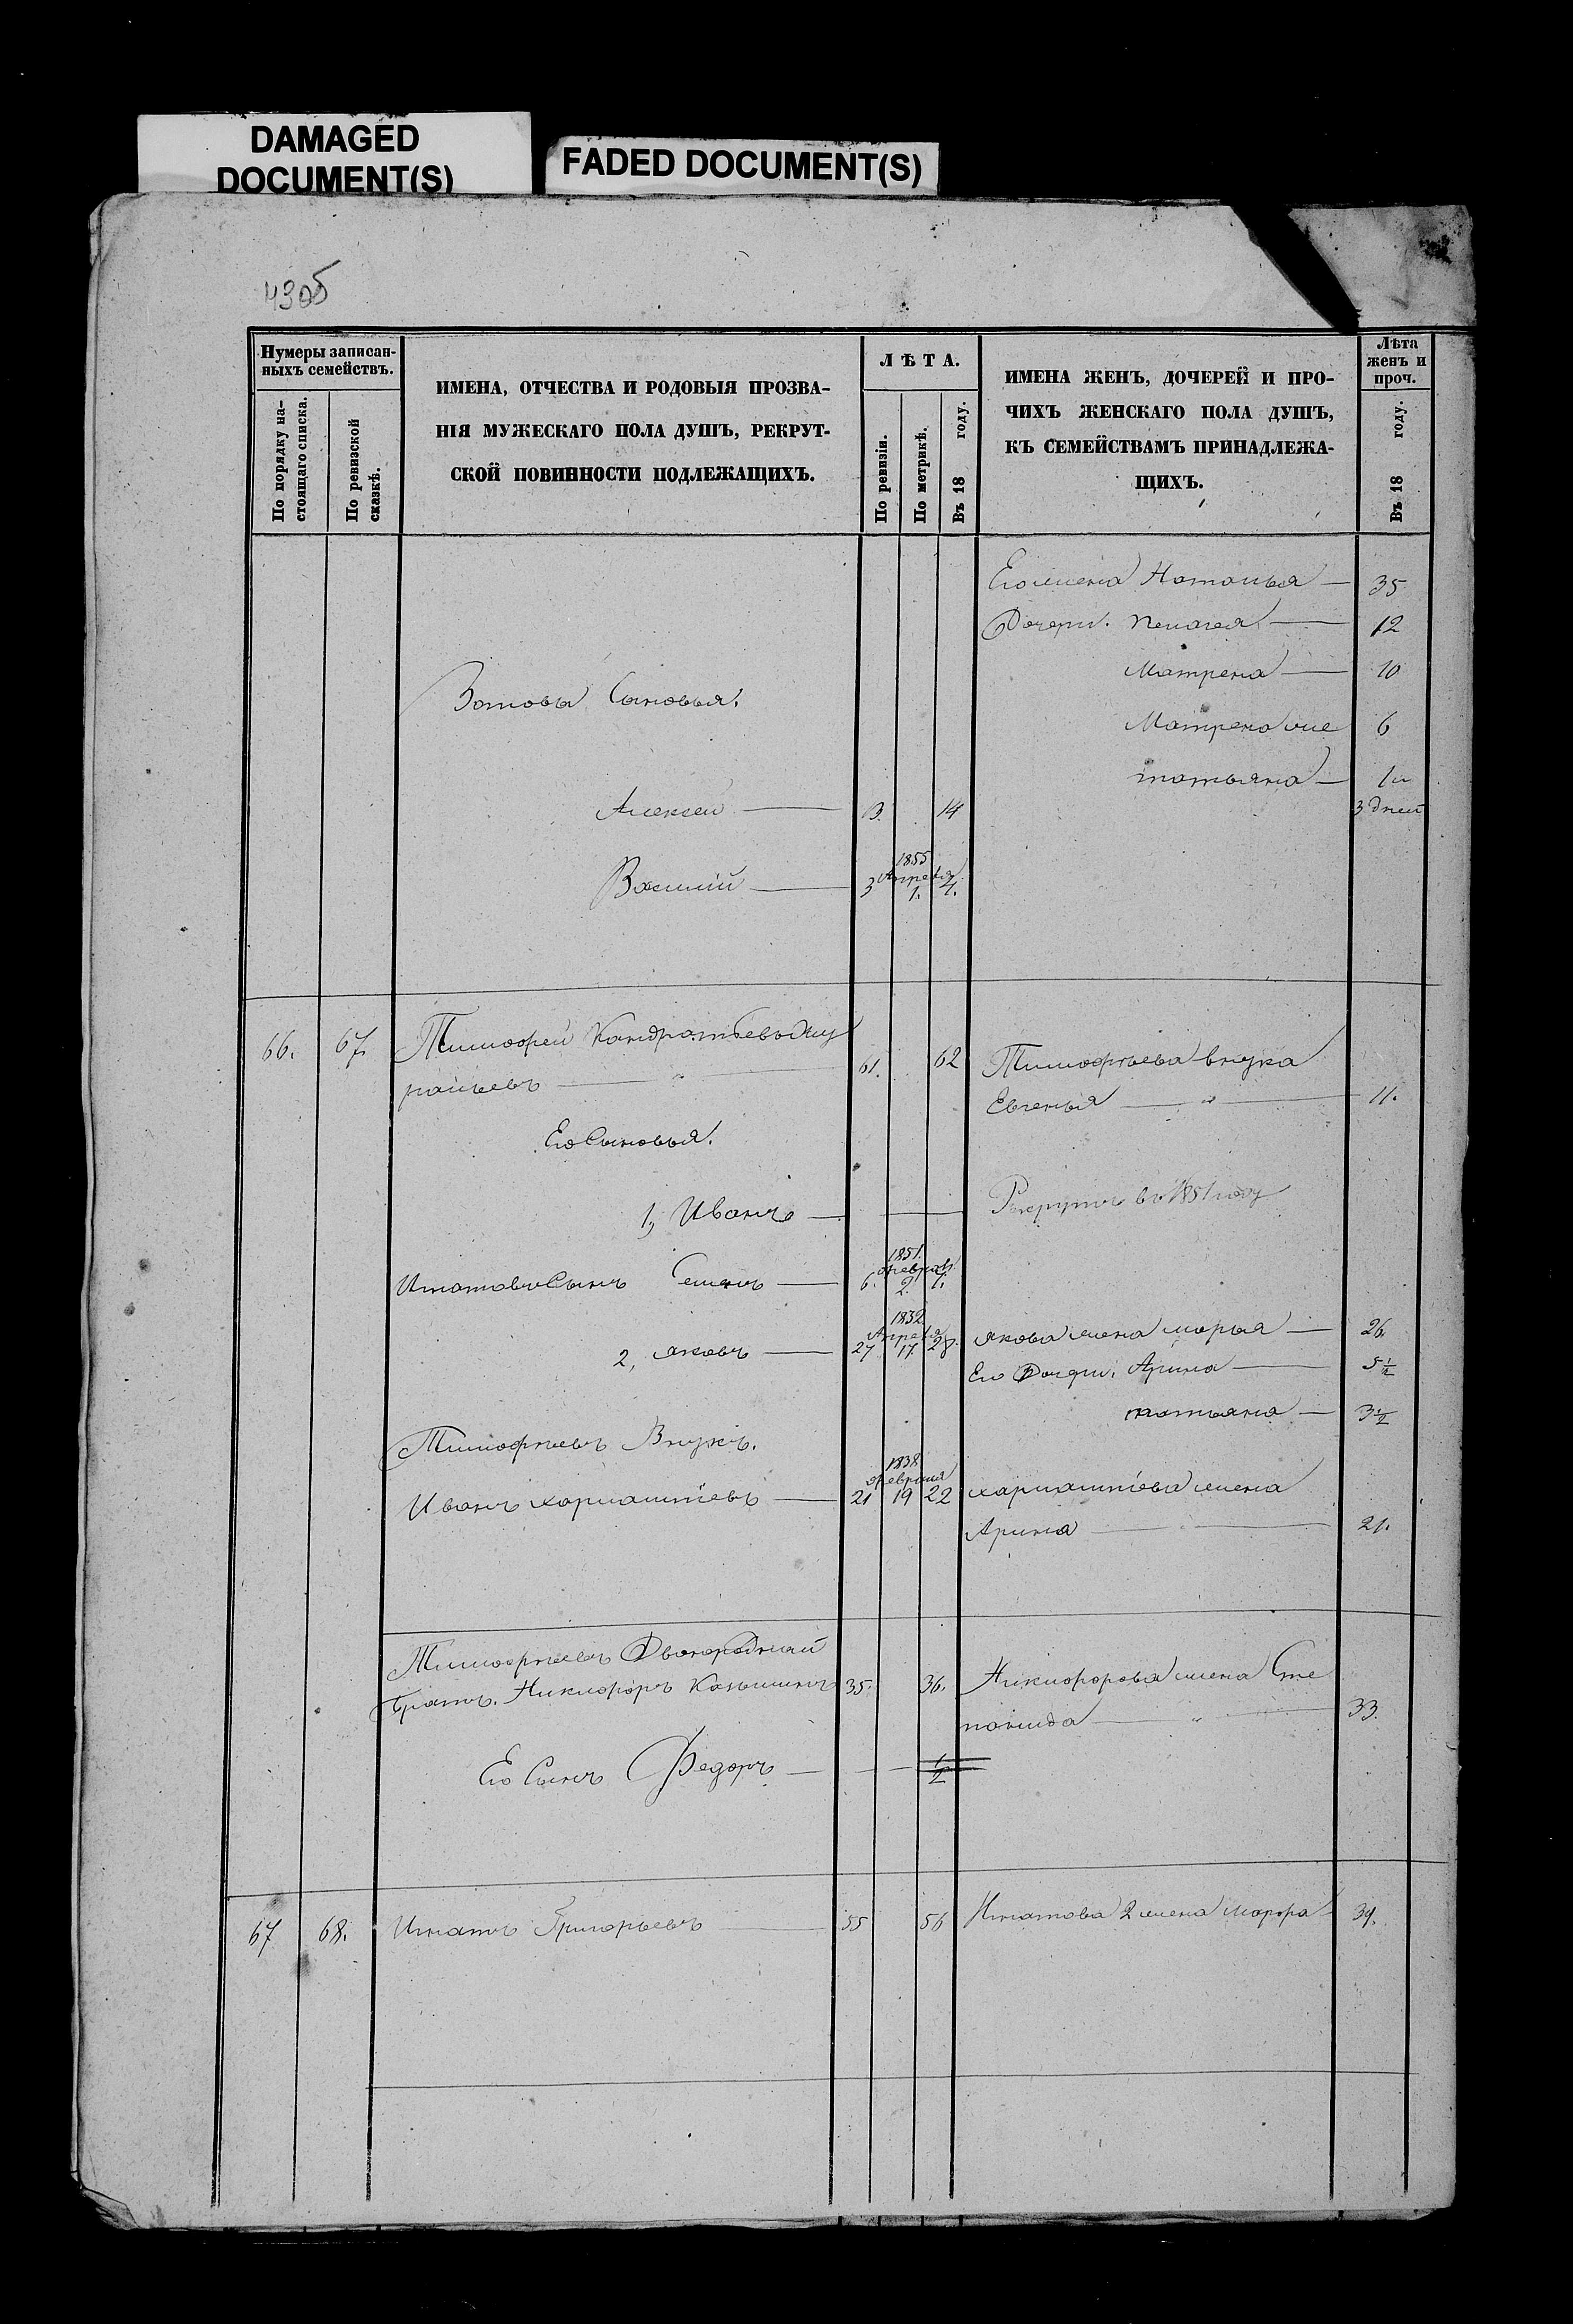 DAMAGED
DOCUMENT(S)
FADED DOCUMENT(S)
430б
Нумеры записан-
ныхъ семействъ.
По порядку на-
стоящаго списка.
По ревизской
сказкѣ.
ИМЕНА, ОТЧЕСТВА И РОДОВЫЯ ПРОЗВА-
НІЯ МУЖЕСКАГО ПОЛА ДУШЪ, РЕКРУТ-
СКОЙ ПОВИННОСТИ ПОДЛЕЖАЩИХЪ.
ЛѢТА.
По ревизіи.
По метрикѣ.
Въ 18 году.
ИМЕНА ЖЕНЪ, ДОЧЕРЕЙ И ПРО-
ЧИХЪ ЖЕНСКАГО ПОЛА ДУШЪ,
КЪ СЕМЕЙСТВАМЪ ПРИНАДЛЕЖА-
ЩИХЪ.
Лѣта
женъ и
проч.
Въ 18 году.
Его жена Наталья — 35
Дочери. Пелагея — 12
Матрена — 10
Зотовы Сыновья.
Матрена же 6
татьяна —
3 дней
Алексей — 14
1855
Апреля
Василій — 3 1. 4.
66. 67. Тимофей Кандратьевъ
61. 62 Тимофѣева внука
Евгенья — 11.
Его Сыновья.
1, Иванъ — Рекрутъ въ 1851 году
1851.
Феврал
Сынъ Семенъ — 6. 2. 7.
1832
Апреля
2, яковъ — 27 17. 28. якова жена марья — 26.
Его Дочери. Арина — 5 1/2
татьяна — 3 1/2
Тимофѣевъ Внукъ.
1838
февраля
Иванъ харлампіевъ — 21 19 22 харлампіева жена
Арина — 21.
Тимофѣевъ Двоюродный
братъ. Никифоръ 35. 36. Никифорова жена Сте
понида — 33.
Его Сынъ Федоръ — 1/2
67 68. Игнатъ Григорьевъ — 55 56 Игнатова 2 жена Марфа 39.